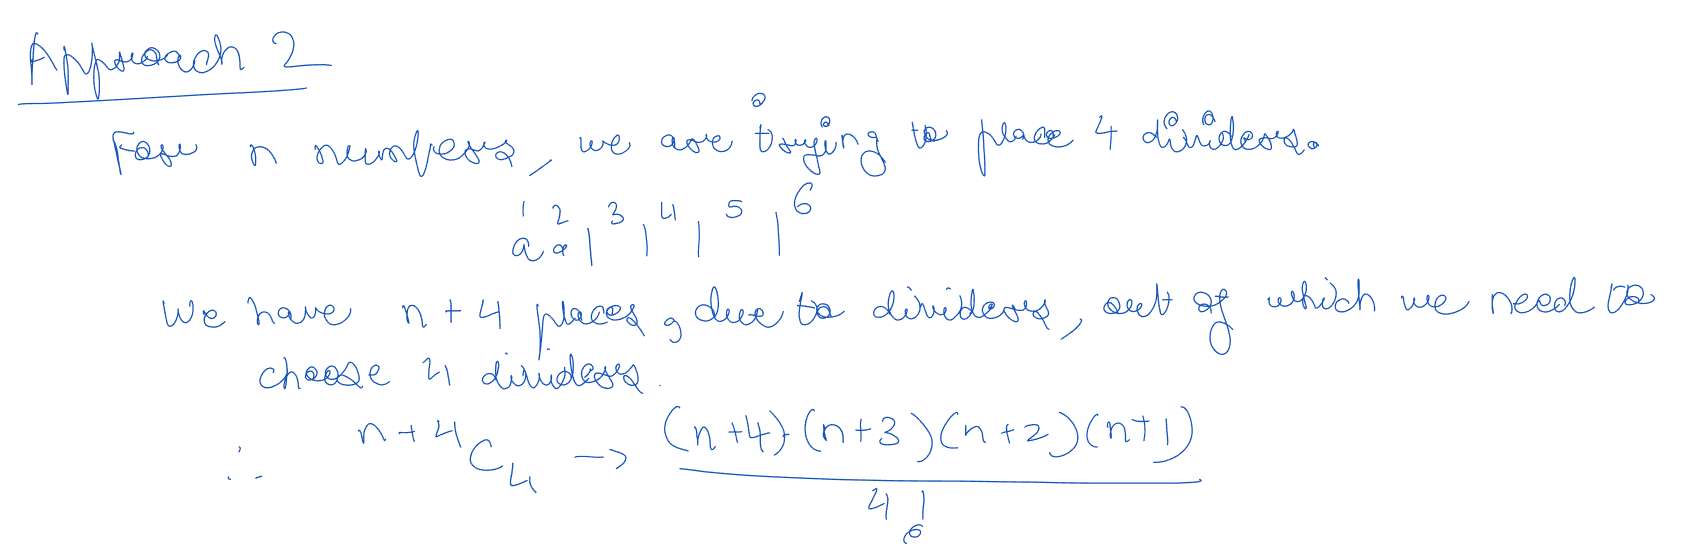 Approach 2
For n numbers, we are trying to place 4 dividers.
1 2 3 4 5 6
a a | | | |
We have n + 4 places, due to dividers, out of which we need to
choose 4 dividers.
∴ n+4C4 → (n+4)(n+3)(n+2)(n+1)
4!